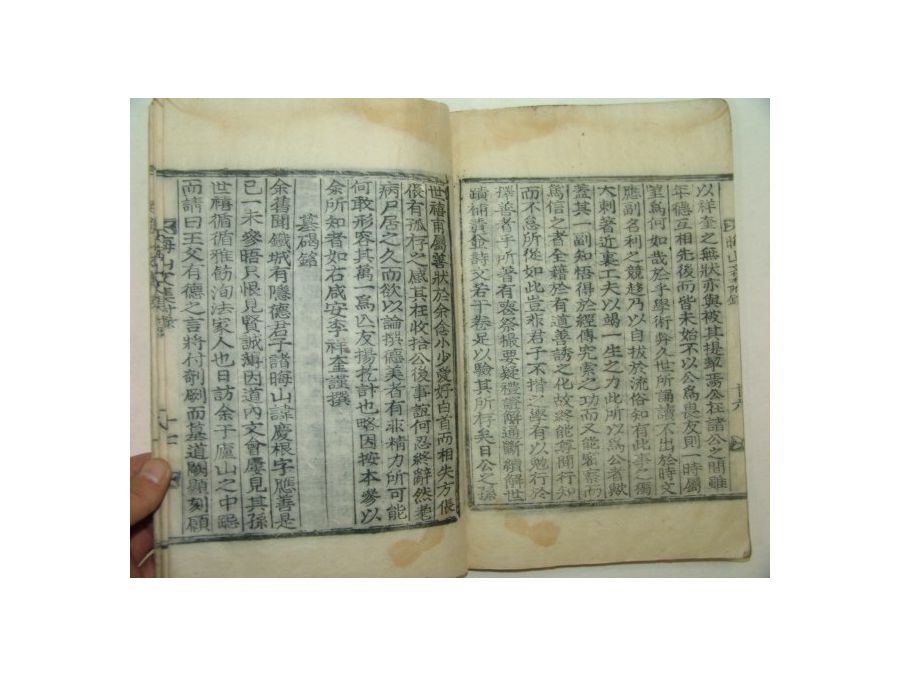 以祥奎之無狀亦與被其提挈焉公在諸公之間雖
年德互相先後而皆未始不以公爲畏友則一時屬
望爲何如哉於乎學術與久世所誦說不出於時文
應副名利之競趍乃以自拔於流俗知有此事之獨
大刺著近裏工夫以竭一生之力此所以爲公者歟
盖其一副知悟得於經傳究索之功而又能密察而
篤信之者全籍於有道善誘之化故終能尊聞行知
而不怠所從如此豈非君子不措之學有以勉行於
擇善者乎所著有喪祭撮要疑禮語解通斷續解世
蹟補賚並詩文若干卷足以驗其所存矣日公之孫
世禧甫屬善狀於余念小少愛好白首而相失方倀
倀有孤存之感其在收拾公後事誼何忍終辭然老
病尸居之久而欲以論撰德美者有非精力所可能
何敢形容其萬一爲亾友揚扢計也略因按本參以
余所知者如右咸安李祥奎謹撰
墓碣銘
余舊聞鐵城有隱德君子諸晦山諱慶根字應善是
已一未參晤只恨見賢誠薄因道內文會屢見其孫
世禧循循雅飭洵法家人也日訪余于廬山之中語
而請曰王父有德之言將付剞劂而墓道闕顯刻願
晦山文集附錄